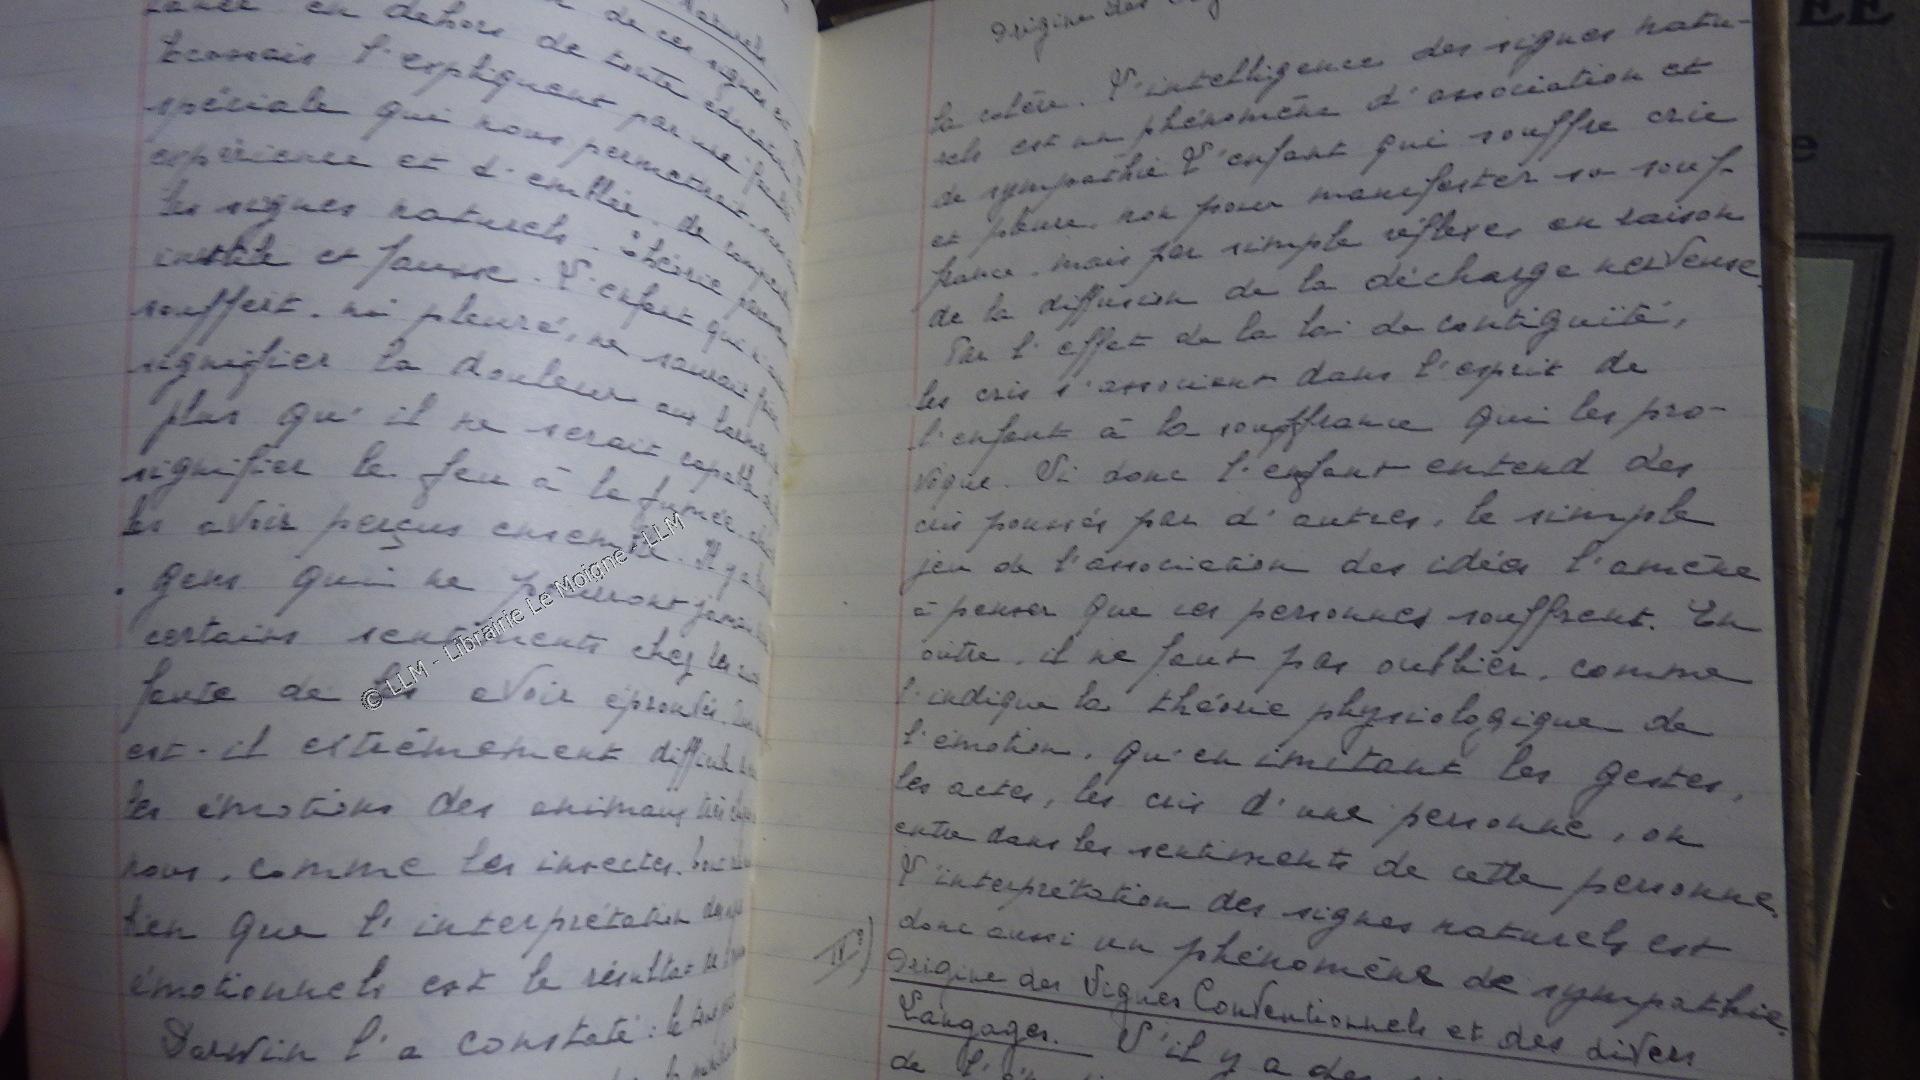 naturels
en dehors de toute éducation
Ecossais l'expliquent par une faculté
spéciale qui nous permettrait, sans
expérience et d'emblée, de
les signes naturels. Théorie
inutile et fausse. L'enfant qui n'a
souffert, ni pleuré, ne saurait faire
signifier la douleur aux larmes
plus qu'il ne serait capable de
signifier le feu à la fumée
les avoir perçus ensemble. Il y a
gens qui ne pourront jamais
certains sentiments chez les
faute de les avoir éprouvés.
est-il extrêmement difficile
les émotions des animaux très
nous, comme les insectes.
bien que l'interprétation des
émotionnels est le résultat de
Darwin l'a constaté : le
Origine des
la colère. L'intelligence des signes natu-
rels est un phénomène d'association et
de sympathie L'enfant qui souffre crie
et pleure, non pour manifester sa souf-
france, mais par simple réflexe en raison
de la diffusion de la décharge nerveuse.
Par l'effet de la loi de contiguïté,
les cris s'associent dans l'esprit de
l'enfant à la souffrance qui les pro-
voque. Si donc l'enfant entend des
cris poussés par d'autres, le simple
jeu de l'association des idées l'amène
à penser que ces personnes souffrent. En
outre, il ne faut pas oublier, comme
l'indique la théorie physiologique de
l'émotion, qu'en imitant les gestes,
les actes, les cris d'une personne, on
entre dans les sentiments de cette personne.
L'interprétation des signes naturels est
donc aussi un phénomène de sympathie.
IV°) Origine des Signes Conventionnels et des divers
Langages. S'il y a des
de l'
EE
e
© LLM - Librairie Le Moigne - LLM